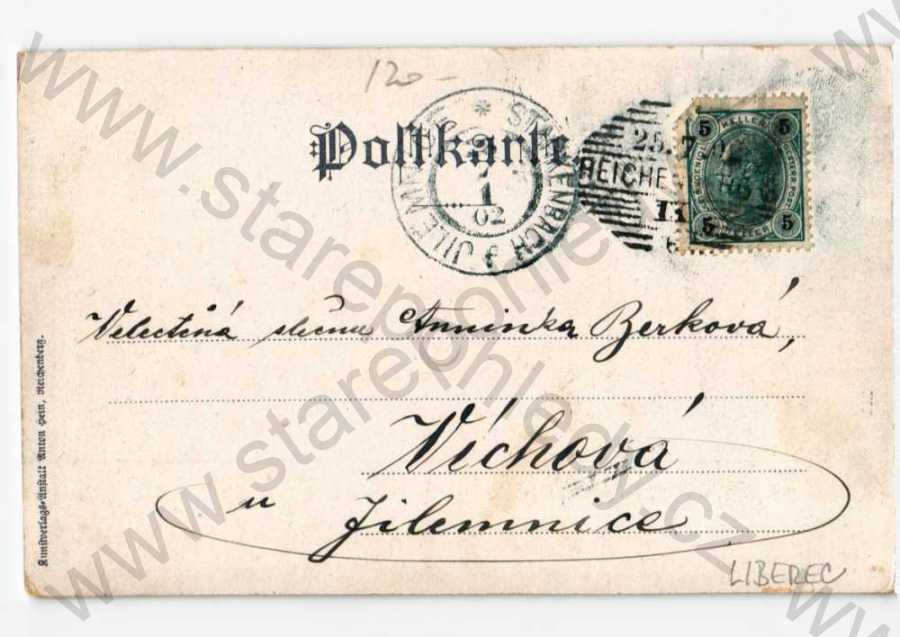 120-
Postkarte
STARKENBACH * JILEMNICE
1
02
25.
REICHE
6
5 HELLER 5
5 HELLER 5
Velectěná slečna Anninka Berková,
Víchová
u Jilemnice
Kunstverlags-Anstalt Anton Hein, Reichenberg.
LIBEREC
www.starepohledy.cz